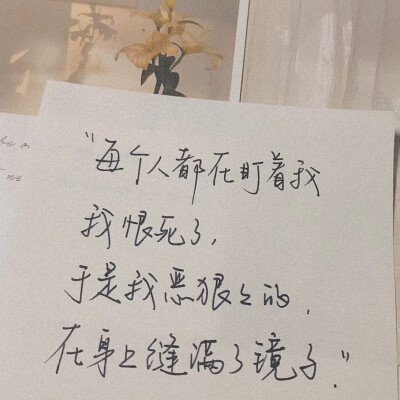 "每个人都在盯着我
我恨死了,
于是我恶狠々的,
在身上缝满了镜子."